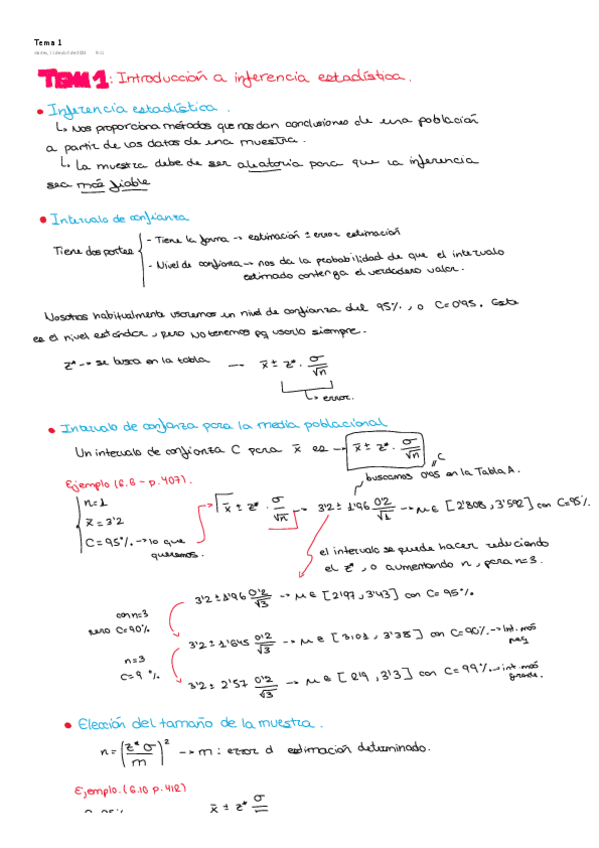 Tema 1
TEMA 1: Introducción a inferencia estadística.
• Inferencia estadística.
↳ Nos proporciona métodos que nos dan conclusiones de una población
a partir de los datos de una muestra.
↳ La muestra debe de ser aleatoria para que la inferencia
sea más fiable
• Intervalo de confianza
Tiene dos partes
- Tiene la forma → estimación ± error estimación
- Nivel de confianza → nos da la probabilidad de que el intervalo
estimado contenga el verdadero valor.
Nosotros habitualmente usaremos un nivel de confianza del 95%, o C=0'95. Este
es el nivel estándar, pero no tenemos pq usarlo siempre.
z* → se busca en la tabla → x̄ ± z* · σ/√n
↳ error.
• Intervalo de confianza para la media poblacional
Un intervalo de confianza C para x̄ es → x̄ ± z* · σ/√n
C
buscamos 0'95 en la Tabla A.
Ejemplo (6.6 - p. 407).
n=1
x̄ = 3'2
C = 95% → lo que
queremos.
x̄ ± z* · σ/√n → 3'2 ± 1'96 0'2/√1 → μ ∈ [2'808, 3'592] con C=95%
el intervalo se puede hacer reduciendo
el z*, o aumentando n, para n=3.
3'2 ± 1'96 0'2/√3 → μ ∈ [2'97, 3'43] con C=95%.
con n=3
pero C=90%
3'2 ± 1'645 0'2/√3 → μ ∈ [3'01, 3'38] con C=90% → int. más
peq
n=3
C=9 %
3'2 ± 2'57 0'2/√3 → μ ∈ [2'9, 3'3] con C=99% → int. más
grande.
• Elección del tamaño de la muestra.
n = (z* σ/m)² → m: error d estimación determinado.
Ejemplo. (6.10 p. 412)
x̄ ± z* σ